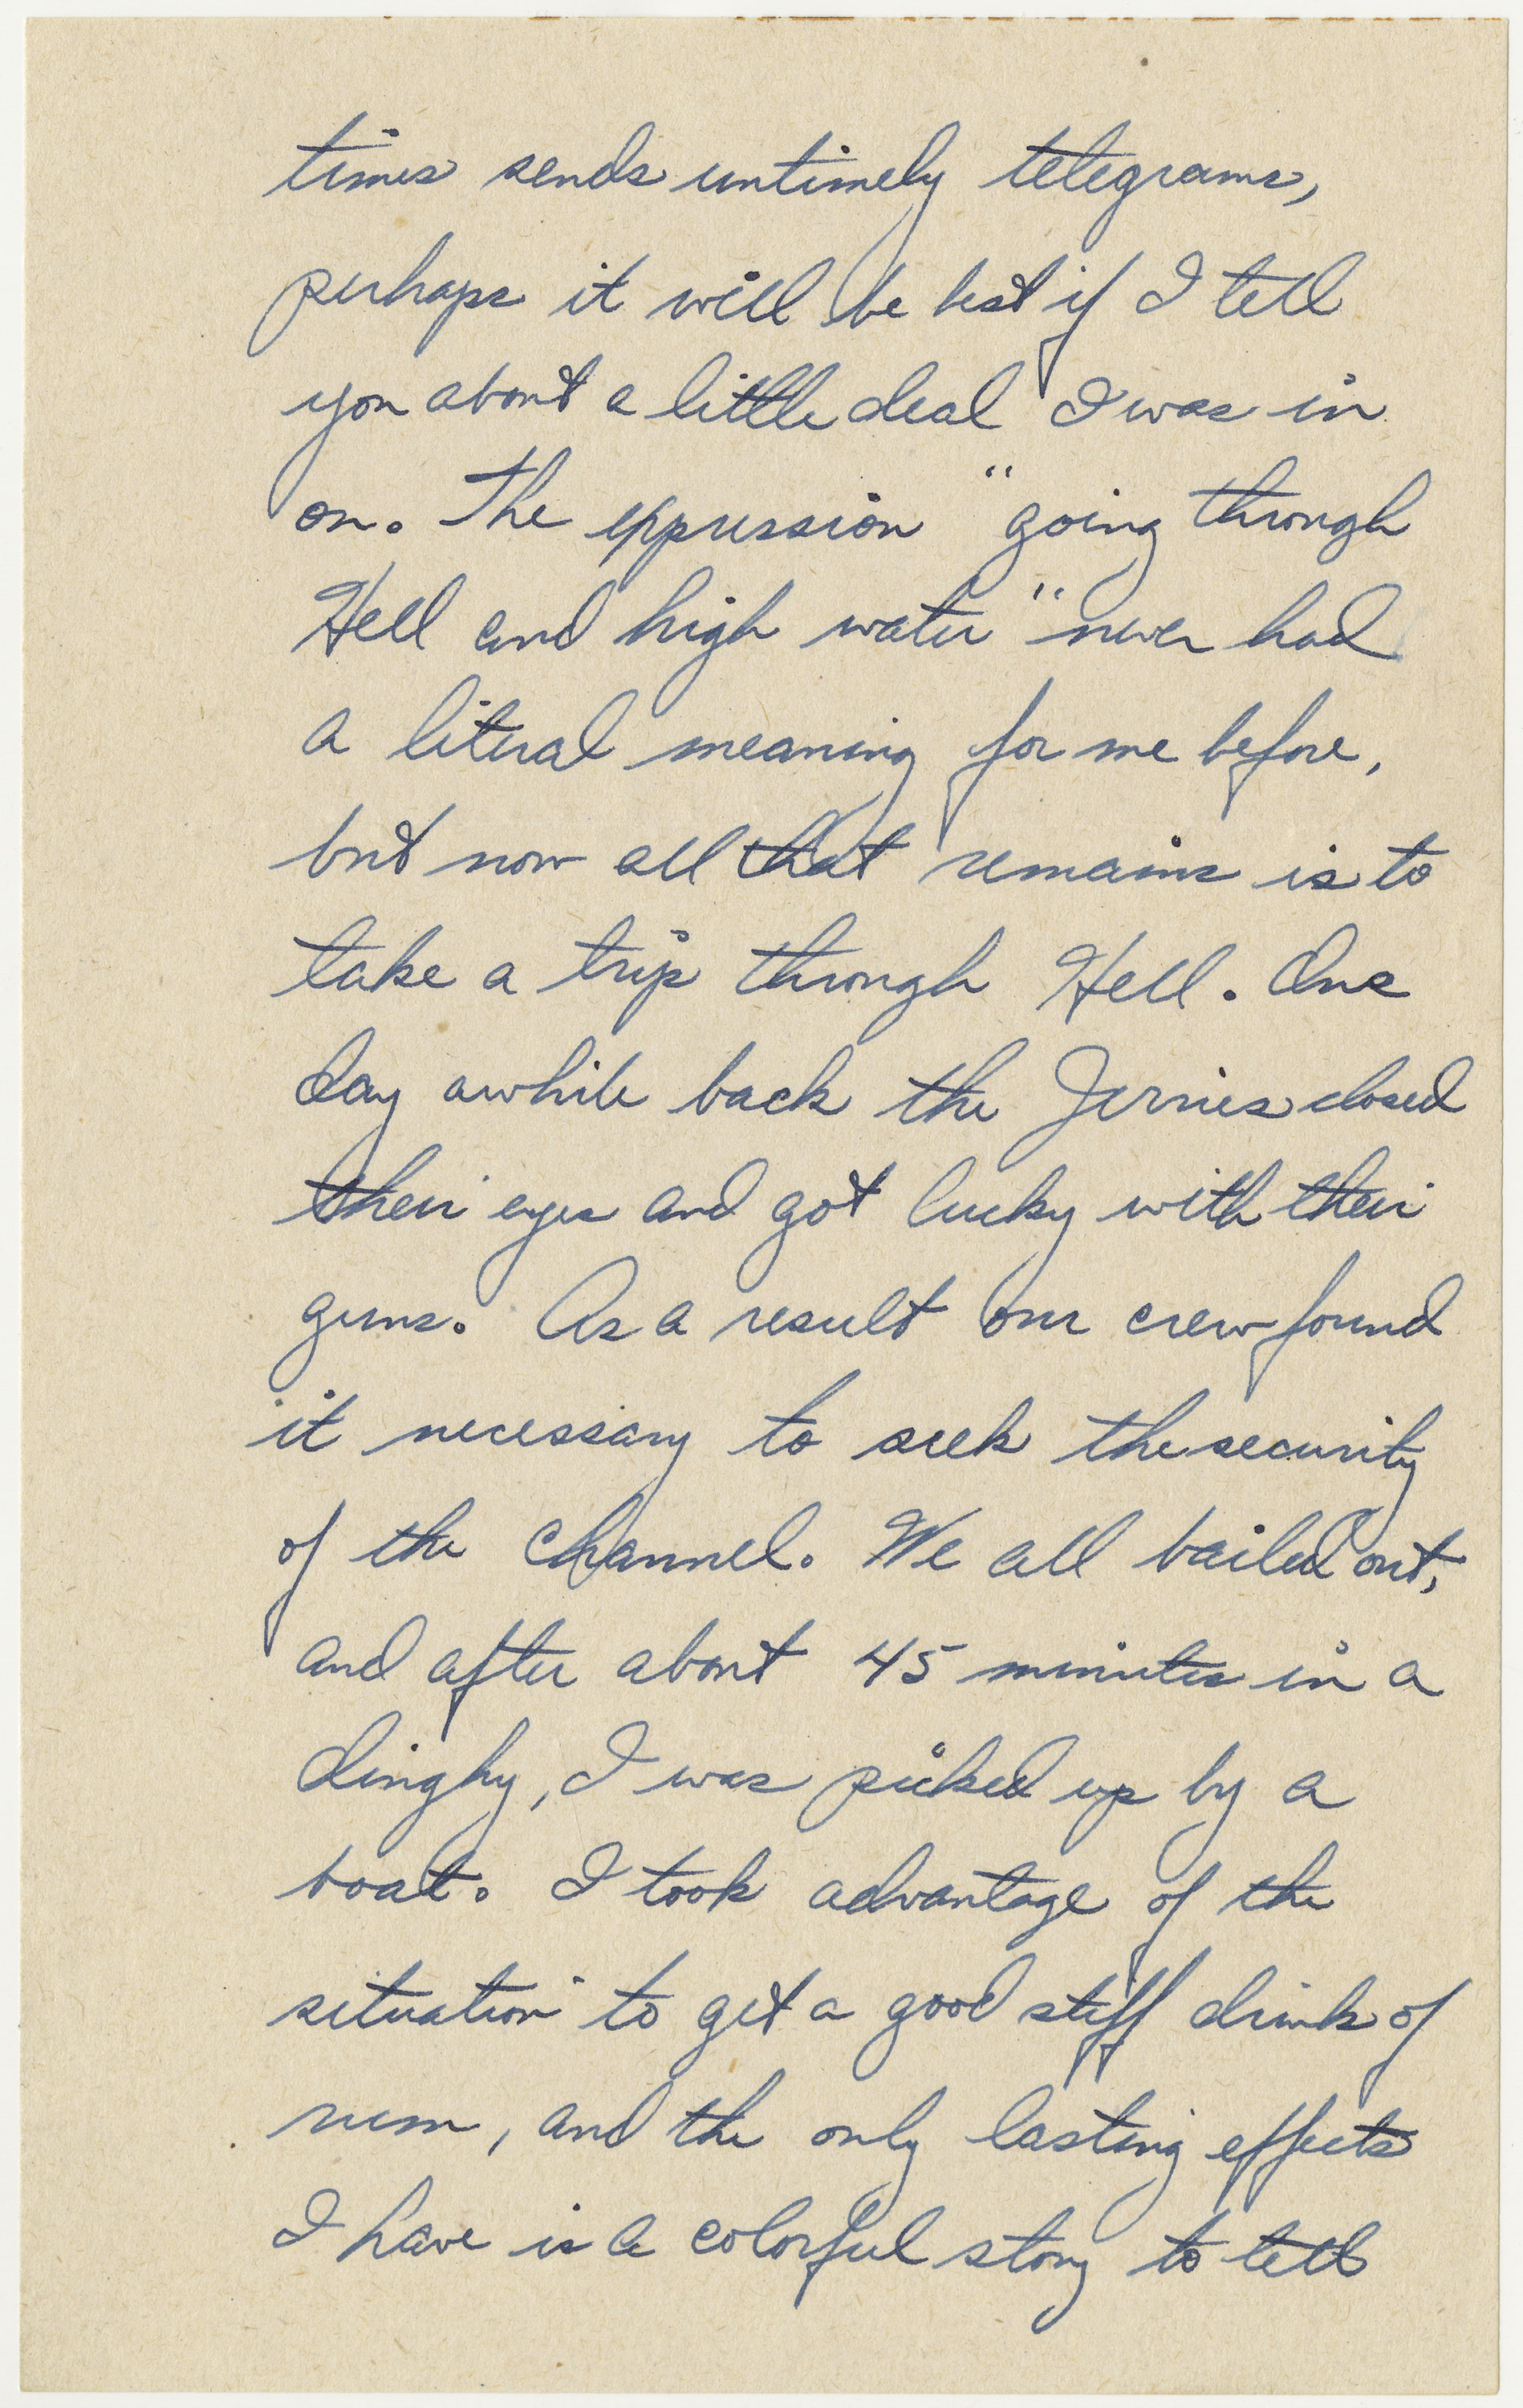 times sends untimely telegrams,
perhaps it will be best if I tell
you about a little deal I was in
on. The eppression "going through
Hell and high water" never had
a literal meaning for me before,
but now all that remains is to
take a trip through Hell. One
day awhile back the Jerries closed
their eyes and got lucky with their
guns. As a result our crew found
it necessary to seek the security
of the channel. We all bailed out,
and after about 45 minutes in a
dinghy, I was picked up by a
boat. I took advantage of the
situation to get a good stiff drink of
rum, and the only lasting effects
I have is a colorful story to tell